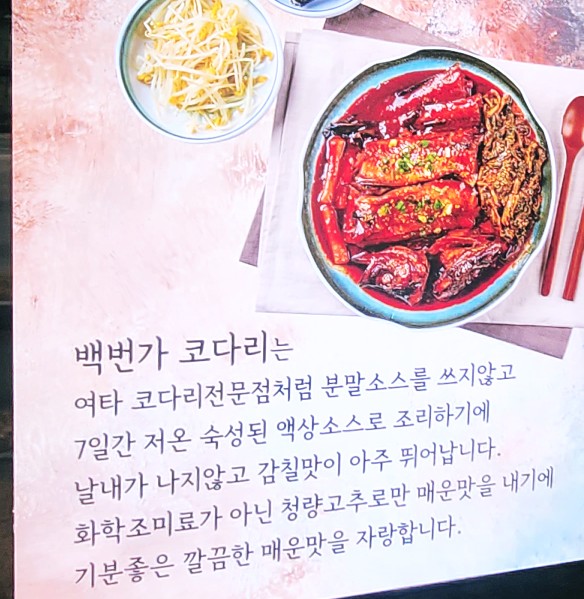 백번가 코다리는
여타 코다리전문점처럼 분말소스를 쓰지않고
7일간 저온 숙성된 액상소스로 조리하기에
날내가 나지않고 감칠맛이 아주 뛰어납니다.
화학조미료가 아닌 청량고추로만 매운맛을 내기에
기분좋은 깔끔한 매운맛을 자랑합니다.